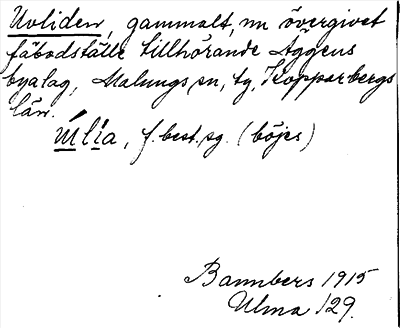 Uvliden, gammalt, nu övergivet
fäbodställe tillhörande Äggens
byalag, Malungs sn, ty, Kopparbergs
län.
ùlìa, f. best. sg. (böjes)
Bannbers 1915
Ulma 129.